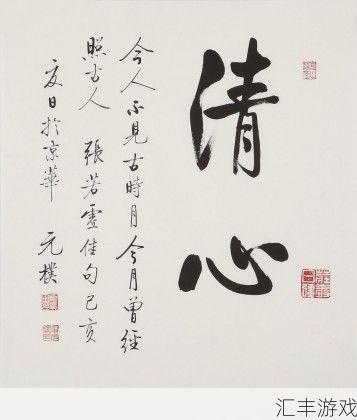 清心
今人不見古時月今月曾經
照古人 張若虛佳句己亥
夏日於京華 元樸
汇丰游戏